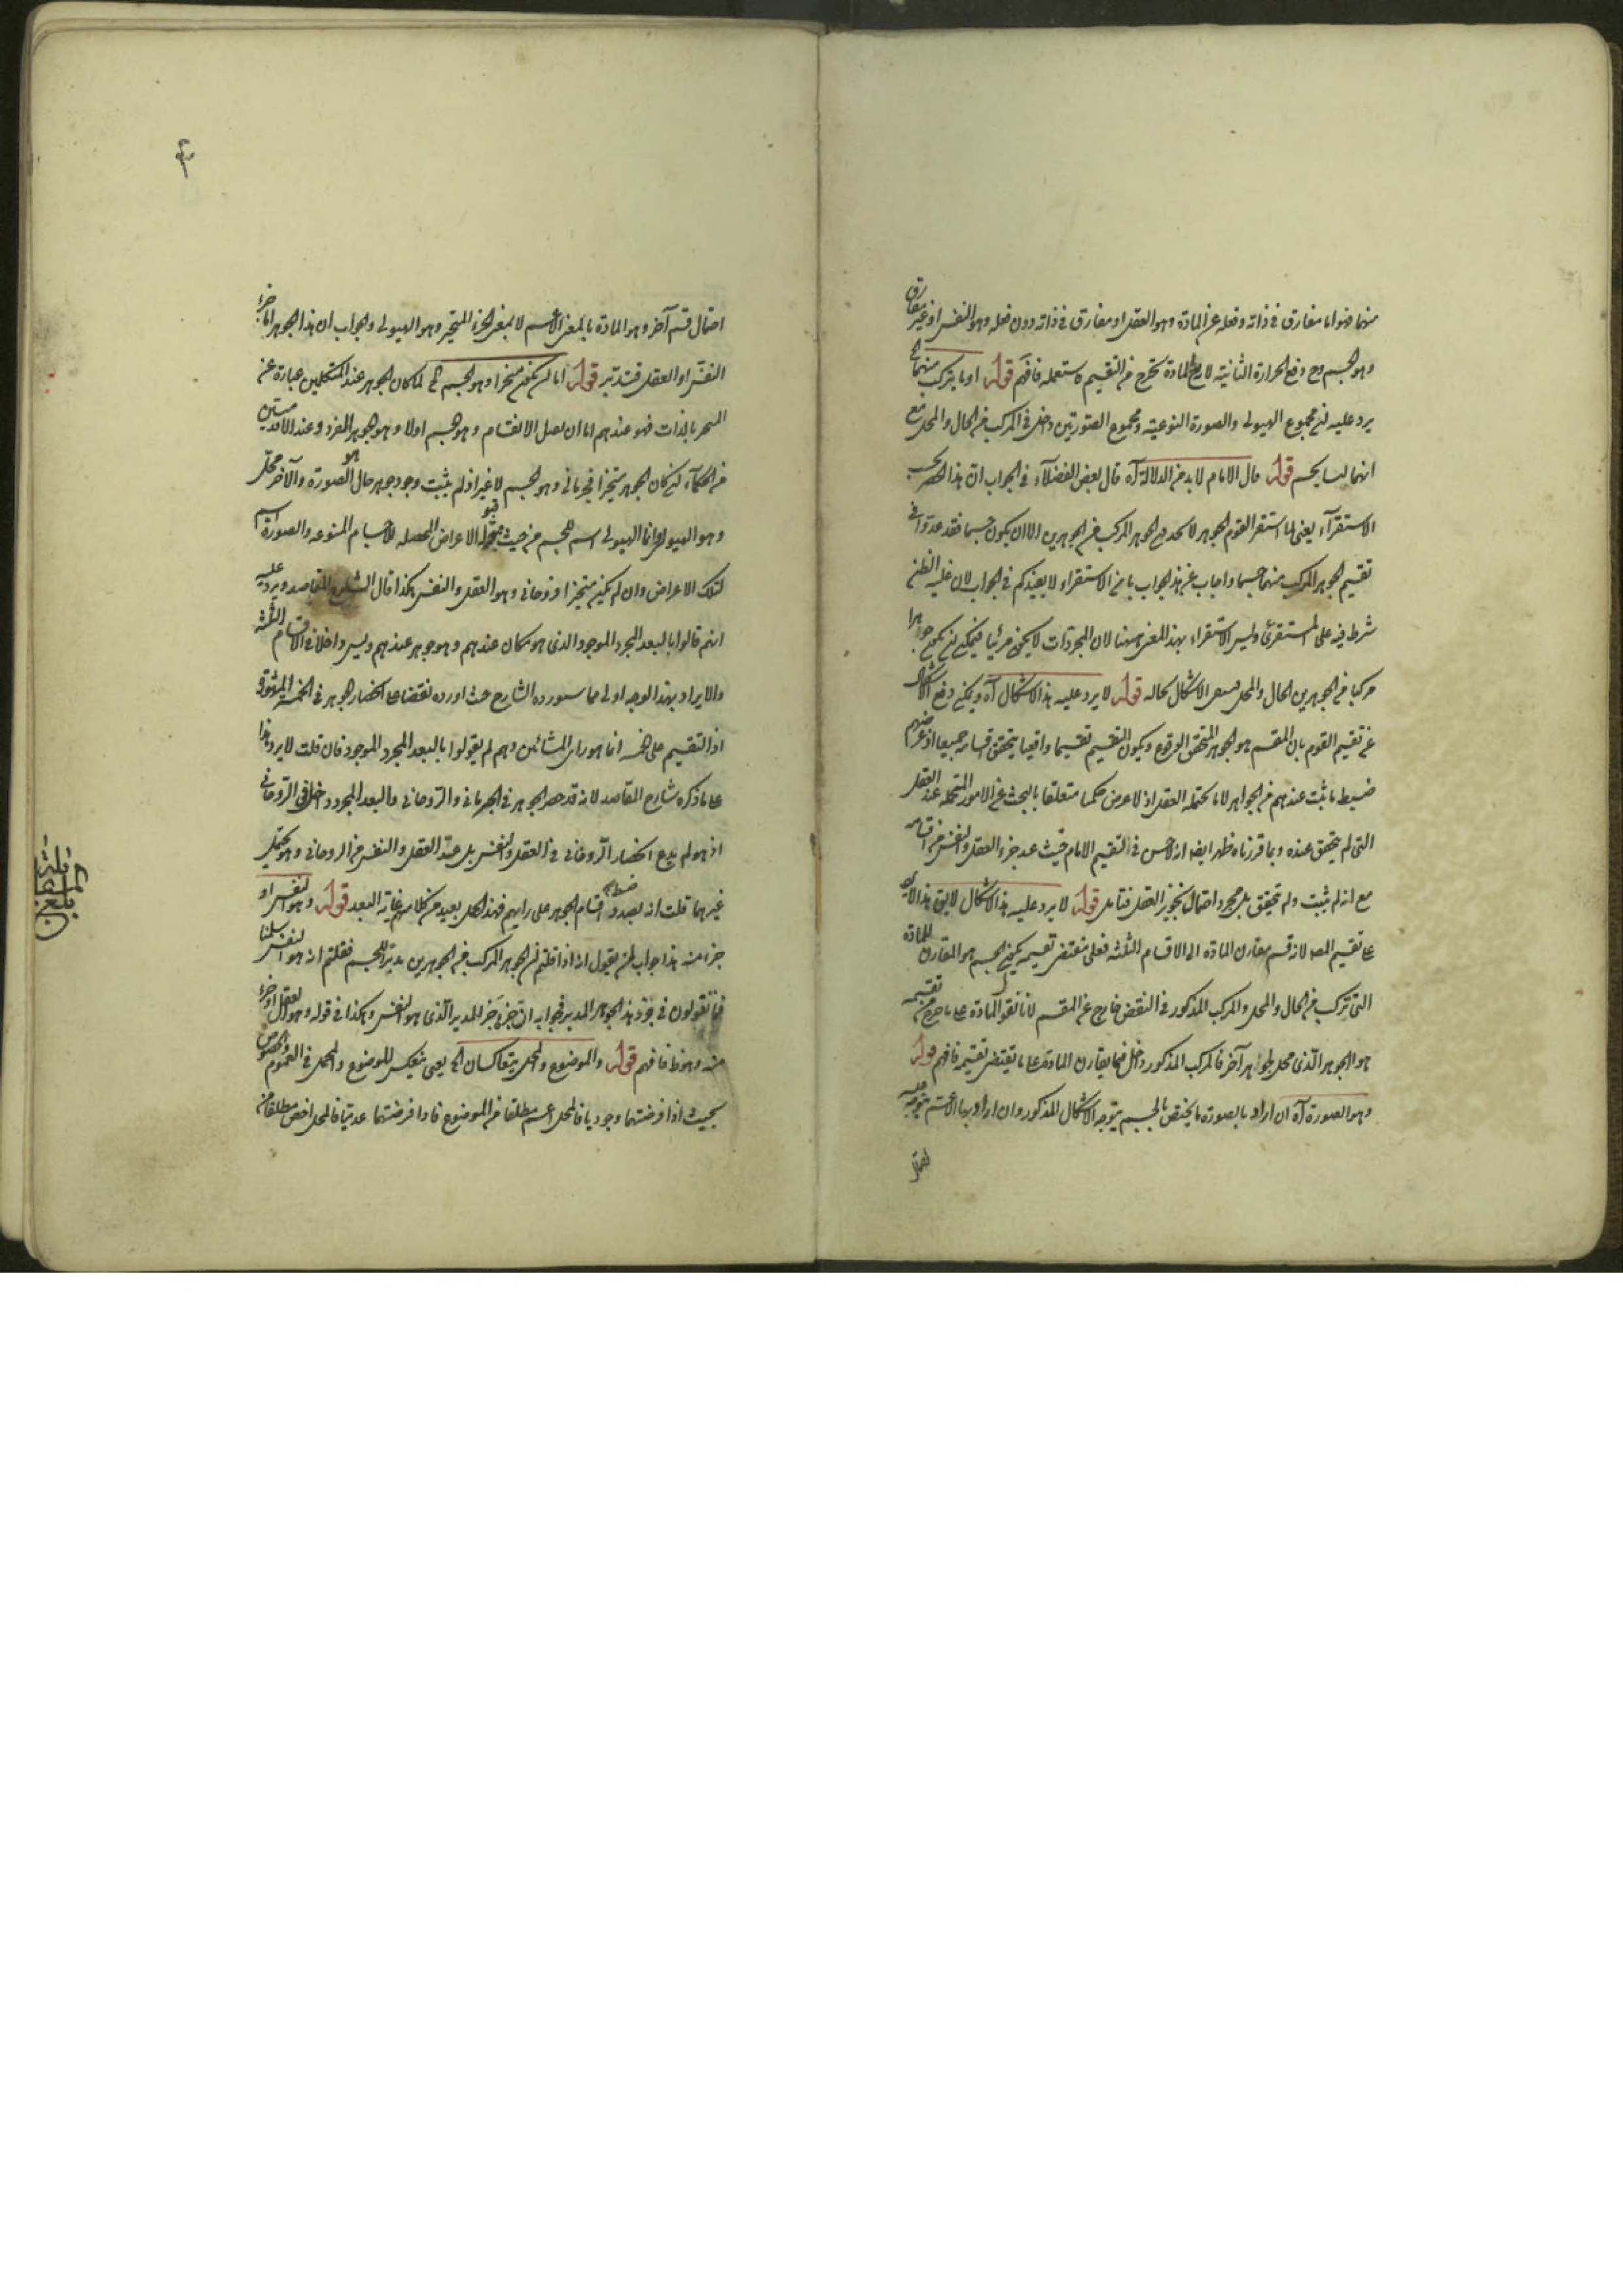 منهما فهو اما مفارق فى ذاته وفعله عن المادة وهو العقل او مفارق فى ذاته دون فعله وهو النفس او غير مفارق
وهو الجسم وح دفع الحرارة الثانية المادة تخرج من التقسيم فافهم قوله او ما يتركب منهما الخ
يرد عليه ان مجموع الهيولى والصورة النوعية ومجموع الصورتين داخل فى المركب من الحال والمحل مع
انهما ليسا بجسم قوله قال الامام لا بد من الدلالة آه قال بعض الفضلاء فى الجواب ان هذا الحصر بحسب
الاستقراء يعنى لما استقر القوم الجوهر لا الجوهر المركب من الجوهرين الا ان يكون جسما فقد عدوا فى
تقسيم الجوهر المركب منهما جسما واجاب عن هذا الجواب بان الاستقراء لا يفيدكم فى الجواب لان غلبة الظن
شرط فيه على المستقرئ وليس الاستقراء بهذا المعنى ههنا لان المجردات لا يكون مرئيا فيمكن ان يكون جوهرا
مركبا من الجوهرين الحال والمحل الاشكال بحاله قوله لا يرد عليه هذا الاشكال آه ويمكن دفع الاشكال
عن تقسيم القوم بان المقسم هو الجوهر المتحقق الوقوع ويكون التقسيم تقسيما واقعيا يتحقق اقسامه جميعا اذ غرضهم
ضبط ما ثبت عندهم من الجواهر لا ما يحتمله العقل اذ لا غرض متعلقا بالبحث عن الامور المحتملة عند العقل
التى لم يتحقق عنده وبما قررناه ظهر ايضا فى التقسيم الامام حيث عد جزء العقل والنفس من اقسامه
مع انه لم يثبت ولم يتحقق بل مجرد احتمال تجويز العقل فتامل قوله لا يرد عليه هذا الاشكال
على تقسيم المص لانه قسم مقارن المادة الى الاقسام الثلثة فعلى مقتضى تقسيمه يكون الجسم هو المقارن للمادة
التى تركب من الحال والمحل والمركب المذكور فى النقض خارج عن المقسم لانا نقول المادة على ما خرج من تقسيمه
هو الجوهر الذى محل لجوهر آخر فالمركب المذكور داخل فيما يقارن المادة على ما يقتضى تقسيمه فافهم قوله
وهو الصورة آه ان اراد بالصورة ما يختص بالجسم يتوجه الاشكال المذكور وان اراد بها الاعم يتوجه عليه
احتمال
احتمال قسم آخر وهو المادة بالمعنى الاعم لا بمعنى الجزء المتحيز وهو الهيولى والجواب ان هذا الجوهر اما جزء
النفس او العقل فتدبر قوله اما ان يكون متحيزا وهو الجسم الخ لما كان الجوهر عند المتكلمين عبارة عن
المتحيز بالذات فهو عندهم اما ان يقبل الانقسام وهو الجسم اولا وهو الجوهر الفرد وعند الاقدمين
من الحكماء ان كان الجوهر متحيزا فجرمانى وهو الجسم لا غير اذ لم يثبت وجود جوهر حال هو الصورة والآخر محل
وهو الهيولى وانما الهيولى اسم للجسم من حيث قبوله الاعراض المحصلة للاجسام المتنوعة والصورة اسم
لتلك الاعراض وان لم يكن متحيزا فروحانى وهو العقل والنفس هكذا قال الشارح المقاصد ويرد عليه
انهم قالوا بالبعد المجرد الموجود الذى هو مكان عندهم وهو جوهر عندهم وليس داخلا فى الاقسام الثلثة
والايراد بهذا الوجه اولى مما سيورده الشارح حيث اورده نقضا على انحصار الجوهر فى الخمسة المشهورة
اذ التقسيم على خمسة انما هو راى المشائين وهم لم يقولوا بالبعد المجرد الموجود فان قلت لا يرد هذا
على ما ذكره شارح المقاصد لانه قد حصر الجوهر فى الجرمانى والروحانى والبعد المجرد داخل فى الروحانى
اذ هو لم يدع انحصار الروحانى فى العقل والنفس بل عد العقل والنفس من الروحانى وهو يحتمل
غيرهما قلت انه بصدد ضبط اقسام الجوهر على رايهم فهذا الحمل بعيد من كلامهم غاية البعد قوله وهو النفس او
جزء منه هذا جواب لمن يقول انه اذا قلتم ان الجوهر المركب من الجوهرين مدبر للجسم فقلتم انه هو النفس سلمنا
فما تقولون فى جزء هذا الجوهر المدبر فجوابه ان جزءه جزء المدبر الذى هو النفس وهكذا فى قوله وهو العقل او جزء
منه وهو ظ فافهم قوله والموضوع والمحل يتعاكسان الخ يعنى ينعكس الموضوع والمحل فى العموم والخصوص
بحيث اذا فرضتهما وجوديا فالمحل اعم مطلقا من الموضوع فاذا فرضتهما عدميا فالمحل اخص مطلقا من
بلغ المقابلة